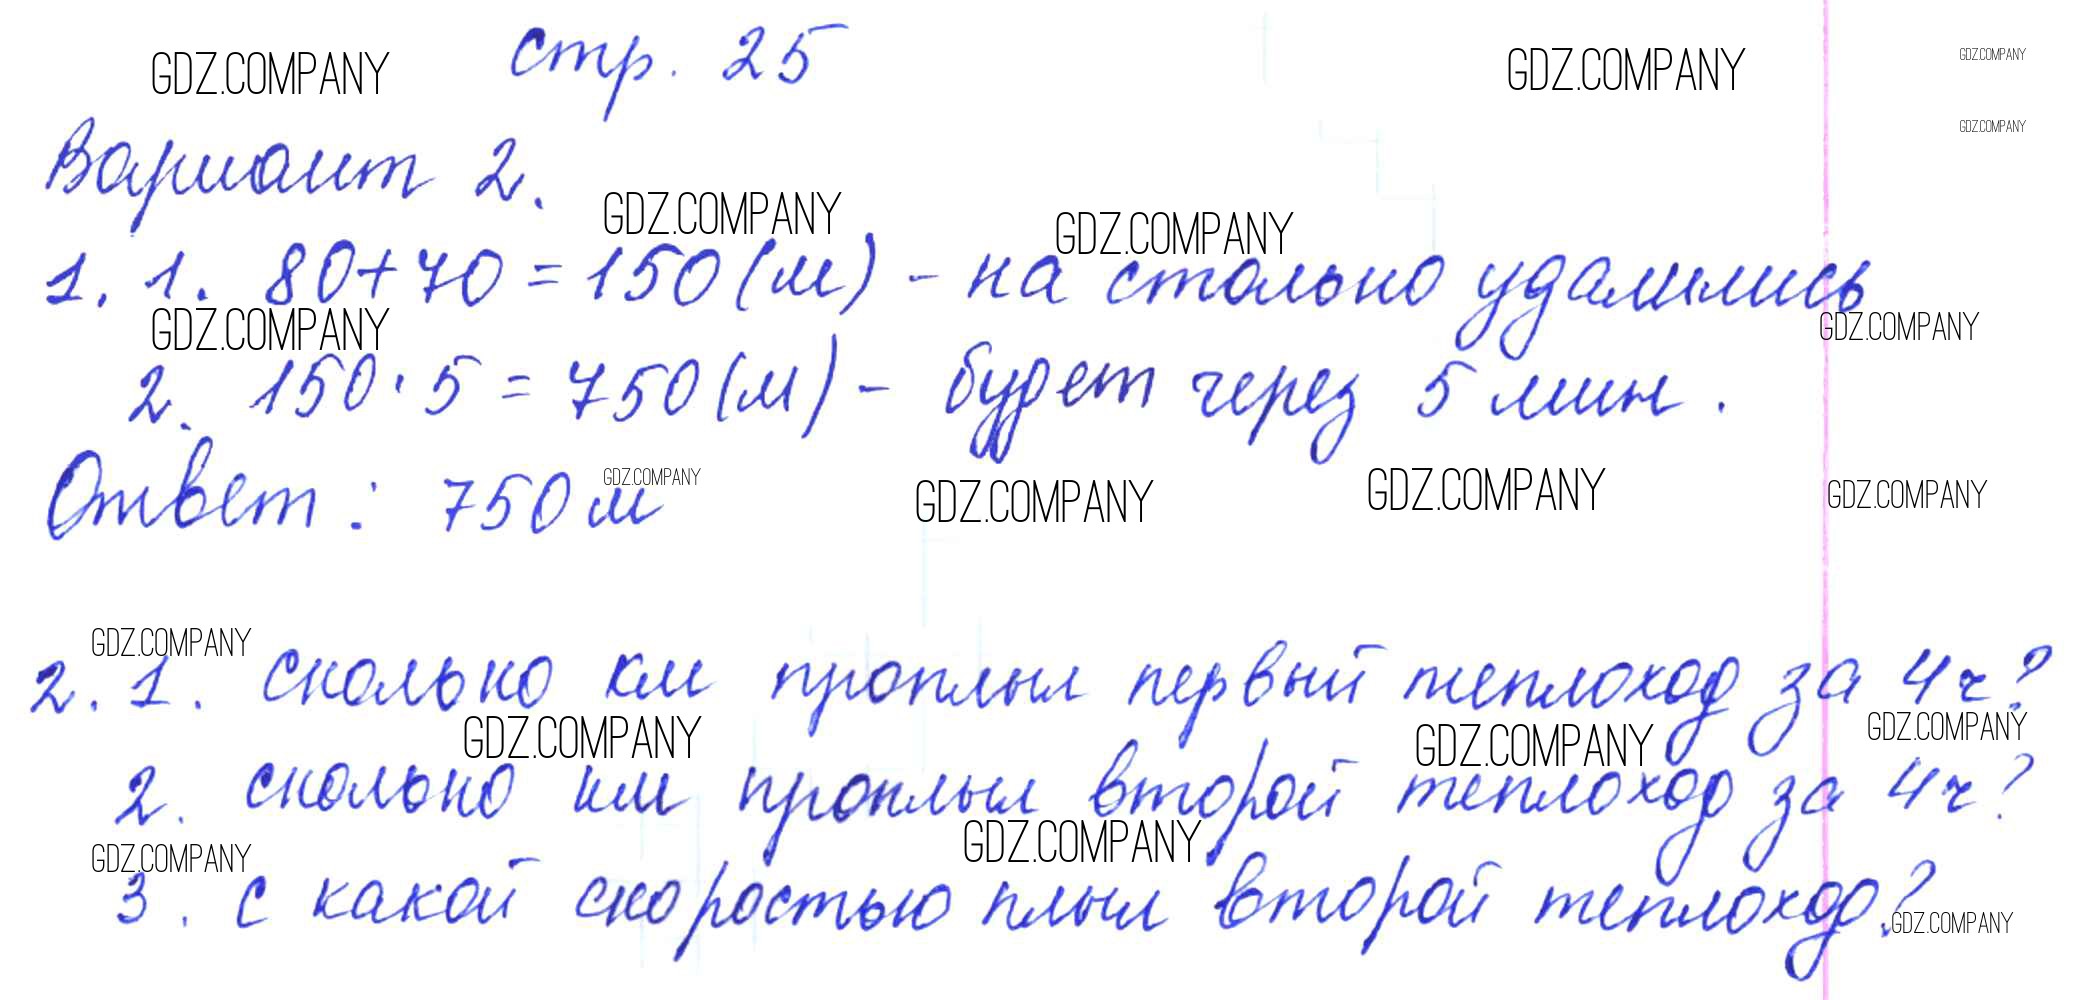 GDZ.COMPANY стр. 25 GDZ.COMPANY GDZ.COMPANY
GDZ.COMPANY
Вариант 2.
GDZ.COMPANY GDZ.COMPANY
1. 1. 80+70=150(м) - на столько удалились
GDZ.COMPANY GDZ.COMPANY
2. 150·5=750(м) - будет через 5 мин.
Ответ: 750м GDZ.COMPANY GDZ.COMPANY GDZ.COMPANY GDZ.COMPANY
GDZ.COMPANY
2. 1. сколько км проплыл первый теплоход за 4ч?
GDZ.COMPANY GDZ.COMPANY GDZ.COMPANY
2. сколько км проплыл второй теплоход за 4ч?
GDZ.COMPANY GDZ.COMPANY
3. с какой скоростью плыл второй теплоход? GDZ.COMPANY